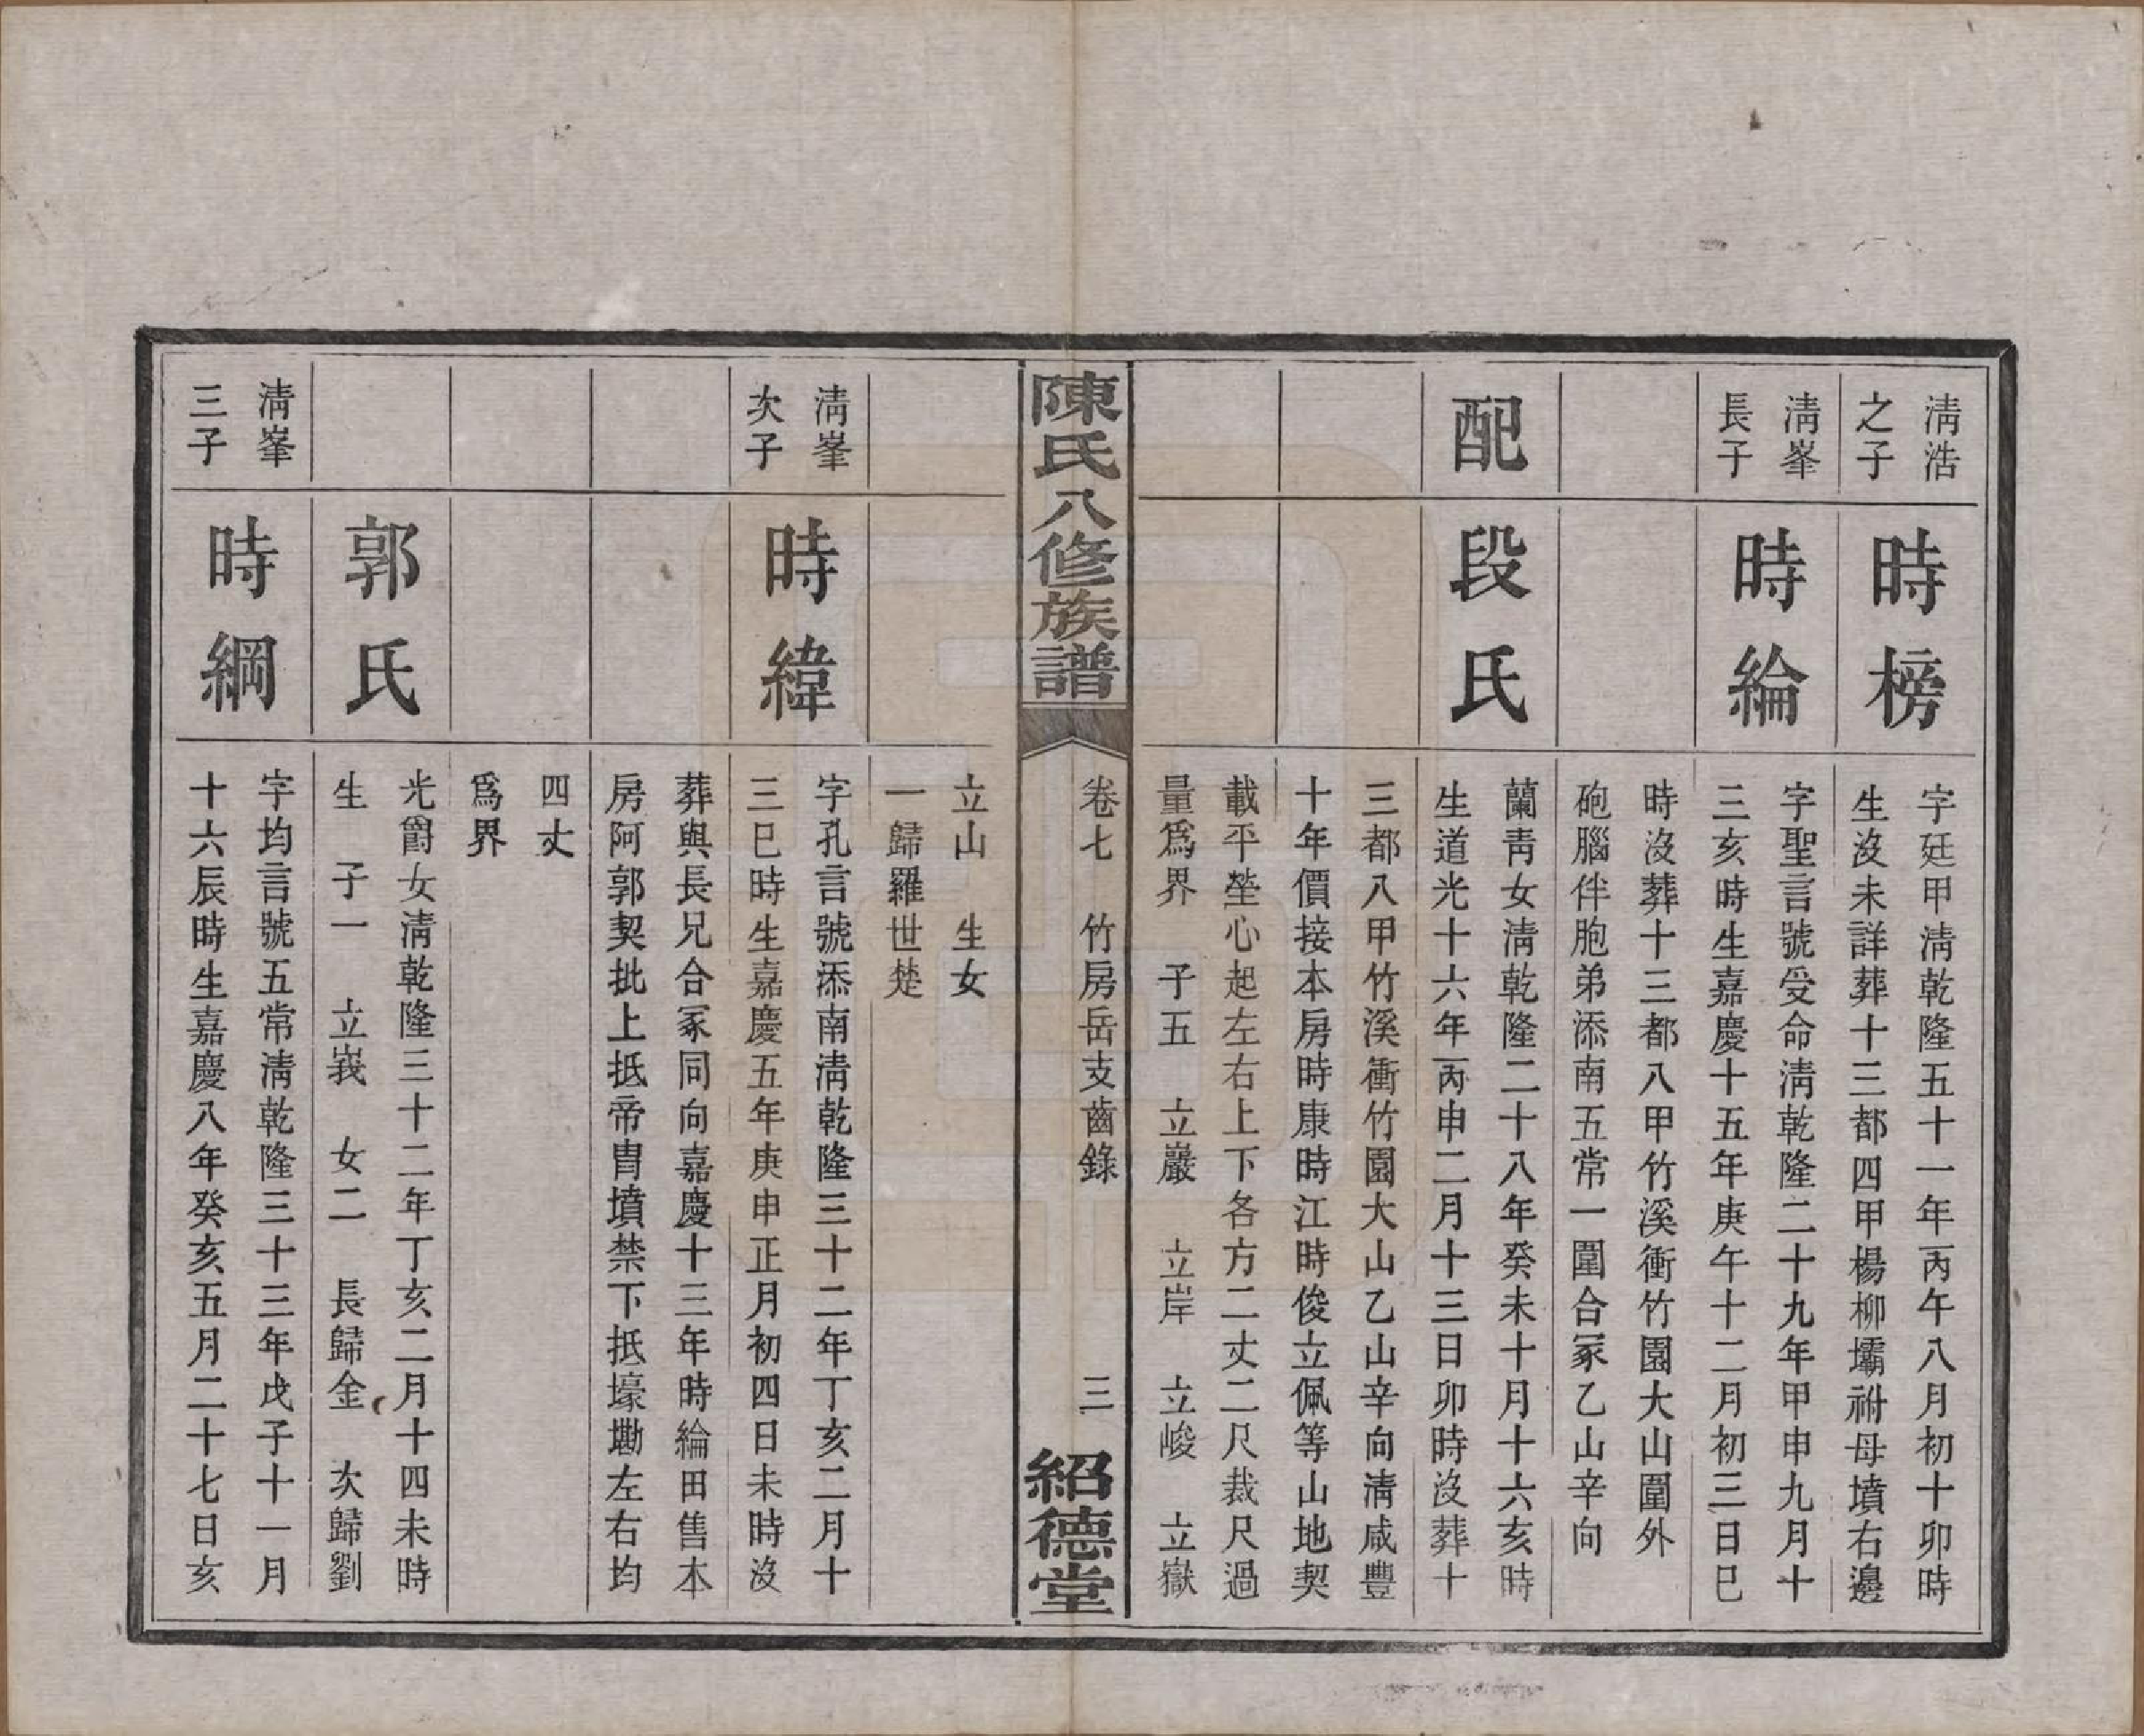 淸浩
之子
時榜
字廷甲淸乾隆五十一年丙午八月初十卯時
生沒未詳葬十三都四甲楊柳壩祔母墳右邊
淸峯
長子
時綸
字聖言號受命淸乾隆二十九年甲申九月十
三亥時生嘉慶十五年庚午十二月初三日巳
時沒葬十三都八甲竹溪衝竹園大山圍外
砲腦伴胞弟添南五常一圍合冢乙山辛向
配
段氏
蘭靑女淸乾隆二十八年癸未十月十六亥時
生道光十六年丙申二月十三日卯時沒葬十
三都八甲竹溪衝竹園大山乙山辛向淸咸豐
十年價接本房時康時江時俊立佩等山地契
載平塋心起左右上下各方二丈二尺裁尺過
量爲界　子五　立巖　立岸　立峻　立嶽
陳氏八修族譜
卷七　竹房岳支齒錄
三
紹德堂
立山　生女
一歸羅世楚
淸峯
次子
時緯
字孔言號添南淸乾隆三十二年丁亥二月十
三巳時生嘉慶五年庚申正月初四日未時沒
葬與長兄合冢同向嘉慶十三年時綸田售本
房阿郭契批上抵帝胄墳禁下抵壕墈左右均
四丈
爲界
郭氏
光爵女淸乾隆三十二年丁亥二月十四未時
生　子一　立峩　女二　長歸金　次歸劉
淸峯
三子
時綱
字均言號五常淸乾隆三十三年戊子十一月
十六辰時生嘉慶八年癸亥五月二十七日亥